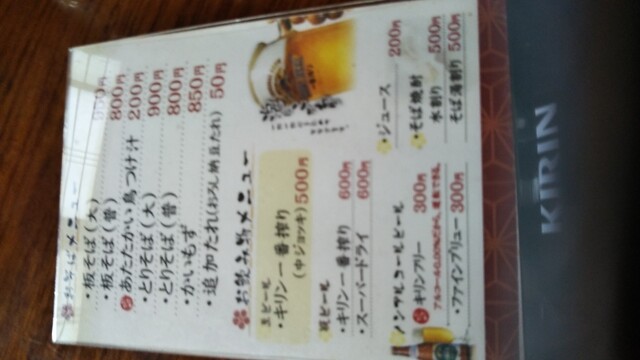 お蕎麦メニュー
・板そば(大) 950円
・板そば(普) 800円
あたたかい鳥つけ汁 200円
・とりそば(大) 900円
・とりそば(普) 800円
・かいもず 850円
・追加たれ(おろし納豆たれ) 50円
お飲み物メニュー
生ビール
・キリン一番搾り
(中ジョッキ) 500円
瓶ビール
・キリン一番搾り 600円
・スーパードライ 600円
ノンアルコールビール
・キリンフリー 300円
アルコール0.00%だから、運転できる。
・ファインブリュー 300円
・ジュース 200円
・そば焼酎
水割り 500円
そば湯割り 500円
KIRIN